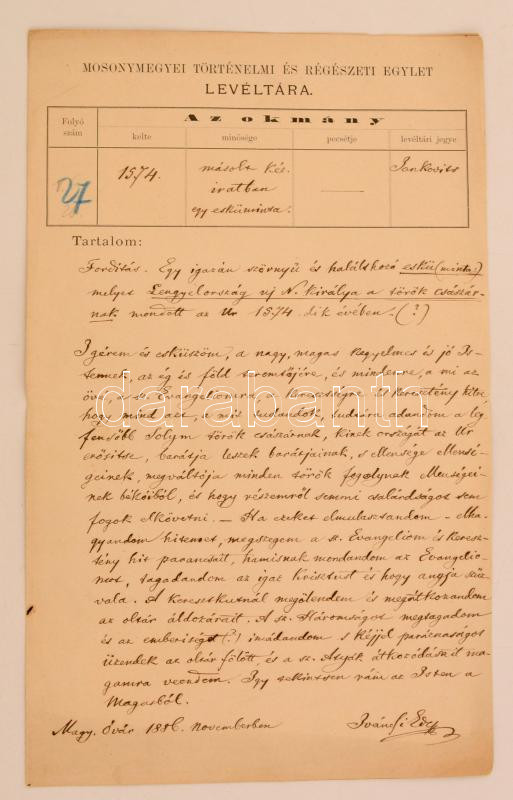 MOSONYMEGYEI TÖRTÉNELMI ÉS RÉGÉSZETI EGYLET
LEVÉLTÁRA.
Folyó szám
Az okmány
kelte minősége pecsétje levéltári jegye
27
1574. másolt kéz. Jankovits
iratban
egy esküminta.
Tartalom:
Fordítás. Egy igazán szörnyű és halálthozó eskü (minta:)
melyet Lengyelország uj N. királya a török császár-
nak mondott az Ur 1574. dik évében. (?)
Igérem és esküszöm, a nagy, magas kegyelmes és jó Is-
tennek, az ég és föld teremtőjére, és mindenre, a mi az
övé, a sz. Evangeliomra, a keresztségre és keresztény hitre
hogy mind azt, a mit tudandok, tudtára adandom a leg
fensőbb török császárnak, kinek országát az Ur
erősitse, barátja leszek barátjainak, s Mensége
geinek, megváltója minden török fogolynak Menségei-
nek békóiból, és hogy részemről semmi csalárdságot sem
fogok elkövetni. — Ha ezeket elmulasztandom - elha-
gyandom hitemet, megszegem a sz. Evangeliom és keresz-
tény hit parancsait, hamisnak mondandom az Evangelio-
mot, tagadandom az igaz Krisztust és hogy anyja szűz
vala. A keresztkutnál megölendem és megátkozandom
az oltár áldozárait. A sz. Háromságot megtagadom
és az emberiséget (.) imádandom s kéjjel paráznaságot
üzendek az oltár fölött, és a sz. Atyák átkozódásait ma-
gamra veendem. Igy tekintsen rám az Isten a
Magasból.
Magy. Óvár 1886. novemberben Ivánfi Ede
darabanth